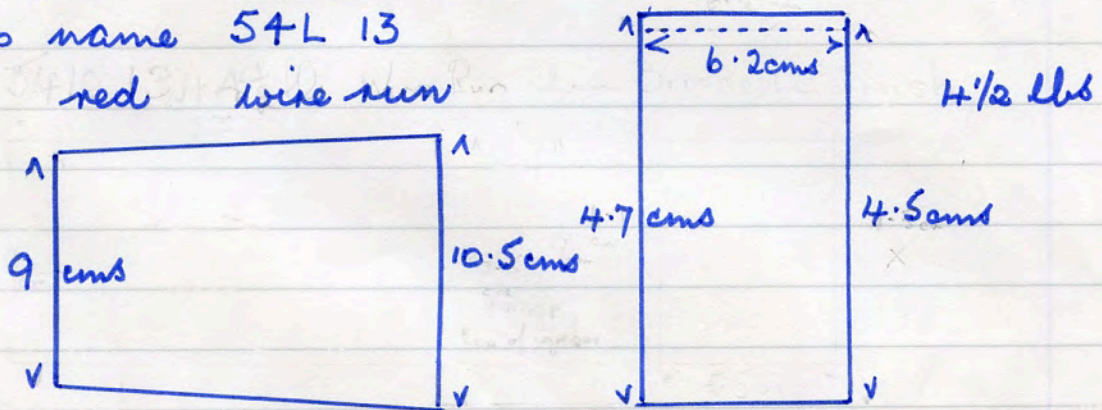 name 54L 13
red wire run
6.2cms
4½ lbs
4.7 cms
4.5cms
9 cms
10.5cms